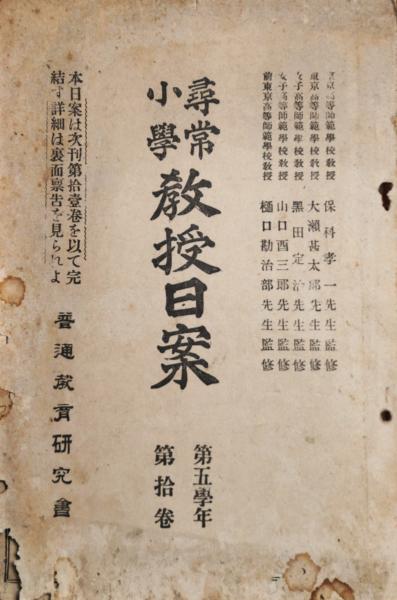 東京高等師範學校教授 保科孝一先生監修
東京高等師範學校教授 大瀬甚太郎先生監修
女子高等師範學校教授 黑田定治先生監修
女子高等師範學校教授 山口酉三郎先生監修
前東京高等師範學校教授 樋口勘治郎先生監修
尋常
小學
敎授日案
第五學年
第拾卷
本日案は次刊第拾壹卷を以て完
結す詳細は裏面禀告を見られよ
普通敎育硏究會